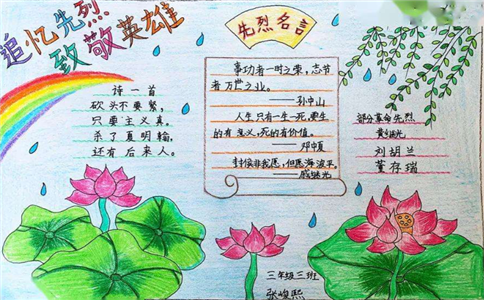 追忆先烈
致敬英雄
先烈名言
诗一首
砍头不要紧,
只要主义真。
杀了夏明翰,
还有后来人。
事功者一时之荣,志节
者万世之业。
——孙中山
人生只一生一死,要生
的有意义,死的有价值。
——邓中夏
封候非我愿,但愿海波平。
——戚继光
部分革命先烈
黄继光
刘胡兰
董存瑞
三年级三班
张峻熙